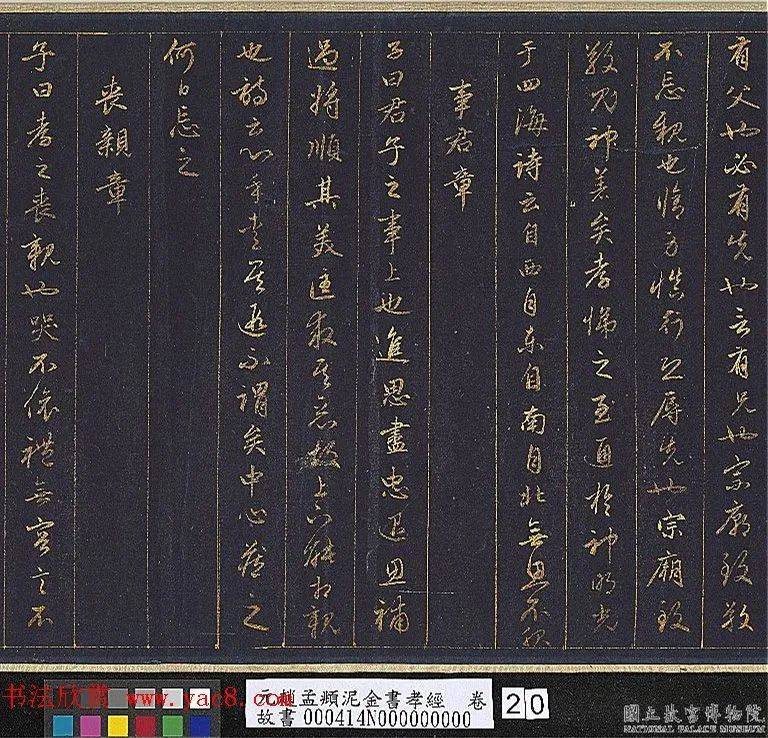 有父也必有先也言有兄也宗廟致敬
不忘親也修身慎行恐辱先也宗廟致
敬鬼神著矣孝悌之至通於神明光
于四海詩云自西自東自南自北無思不服
事君章
子曰君子之事上也進思盡忠退思補
過將順其美匡救其惡故上下能相親
也詩云心乎愛矣遐不謂矣中心藏之
何日忘之
喪親章
子曰孝之喪親也哭不偯禮無容言不
元趙孟頫泥金書孝經 卷
故書000414N000000000
20
书法欣赏 www.yac8.com
國立故宮博物院
NATIONAL PALACE MUSEUM